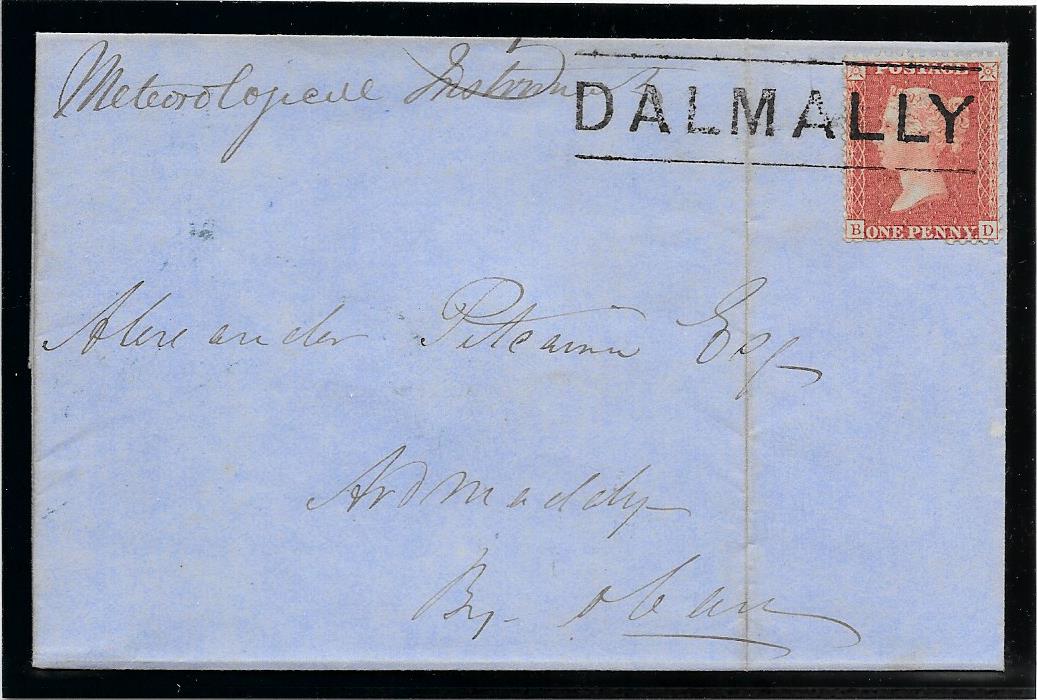 Meteorological Instrument
DALMALLY
POSTAGE
B ONE PENNY D
Alexander Pitcairn Esq
Ardmaddy
By Oban